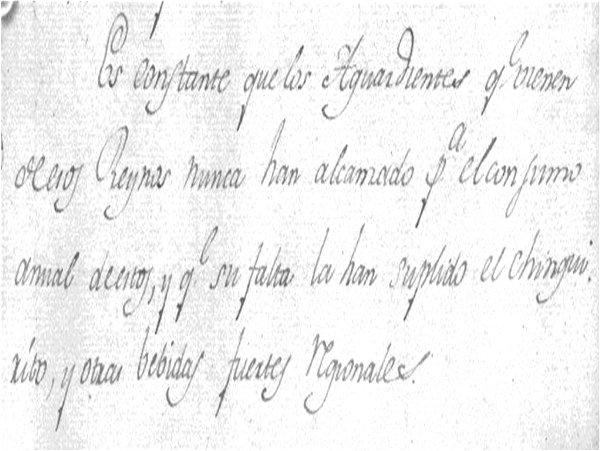 Es constante que los Aguardientes q.e vienen
de esos Reynos nunca han alcanzado p.a el consumo
anual de estos, y q.e su falta la han suplido el chingui-
rito, y otras bebidas fuertes regionales.